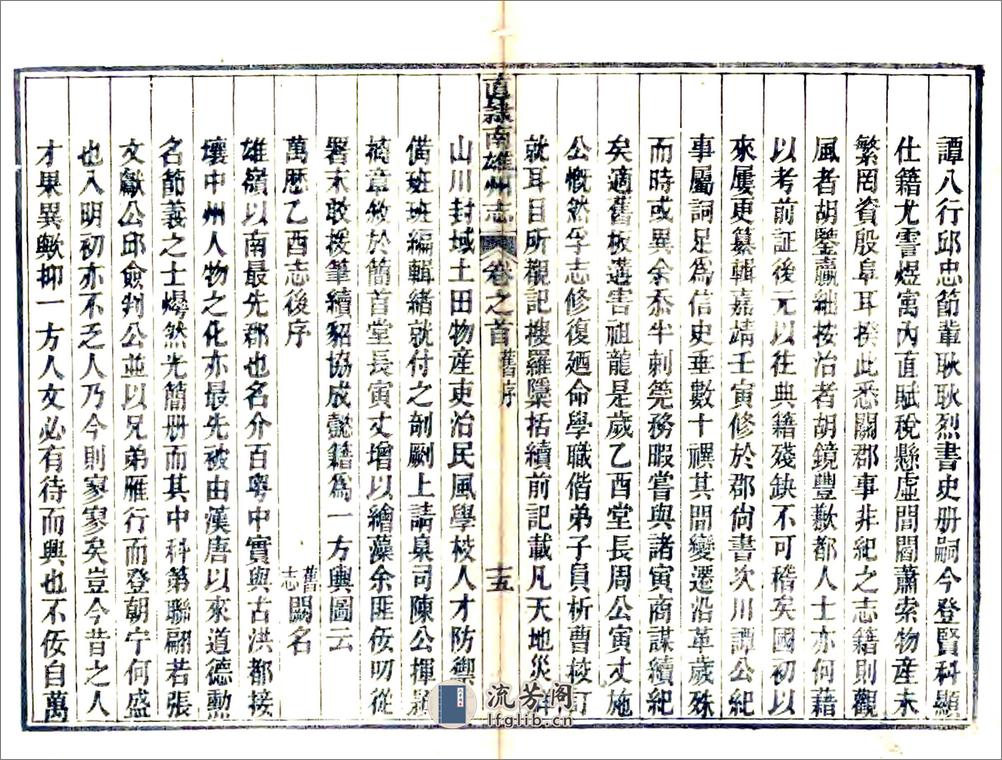 譚八行邱忠節輩耿耿烈書史册嗣今登賢科顯
仕籍尤霅煜寓內直賦稅懸虛閭閻蕭索物產未
繁罔資殷阜耳揆此悉關郡事非紀之志籍則觀
風者胡鑒贏絀按治者胡鏡豐歉都人士亦何藉
以考前証後元以往典籍殘缺不可稽矣國初以
來屢更纂輯嘉靖壬寅修於郡尙書次川譚公紀
事屬詞足爲信史垂數十禩其間變遷沿革歲殊
而時或異余忝半刺筦務暇嘗與諸寅商謀續紀
矣適舊板遘害祖龍是歲乙酉堂長周公寅丈施
公慨然孚志修復廼命學職偕弟子員析曹校訂
就耳目所觀記搜羅隱括續前記載凡天地災祥
山川封域土田物產吏治民風學校人才防禦
備班班編輯緒就付之剞劂上請臬司陳公揮
摛章敘於簡首堂長寅丈增以繪藻余匪佞叨從
署末敢援筆續貂協成懿籍爲一方輿圖云
萬歷乙酉志後序 舊志闕名
雄嶺以南最先郡也名介百粵中實與古洪都接
壤中州人物之化亦最先被由漢唐以來道德勲
名節義之士爆然光簡册而其中科第聯翩若張
文獻公邱僉判公並以兄弟雁行而登朝宁何盛
也入明初亦不乏人乃今則寥寥矣豈今昔之人
才果異歟抑一方人文必有待而興也不佞自萬
直隸南雄州志 卷之首 舊序 十五
流芳阁
lfglib.cn